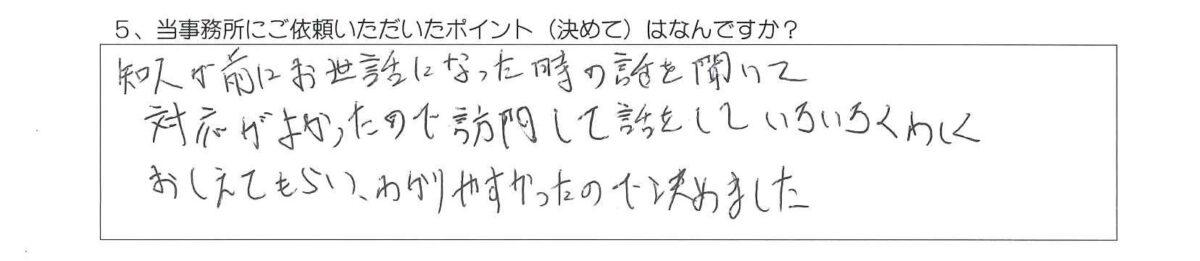 5、当事務所にご依頼いただいたポイント（決めて）はなんですか？
知人が前にお世話になった時の話を聞いて
対応がよかったので訪問して話をしていろいろくわしく
おしえてもらい、わかりやすかったので決めました